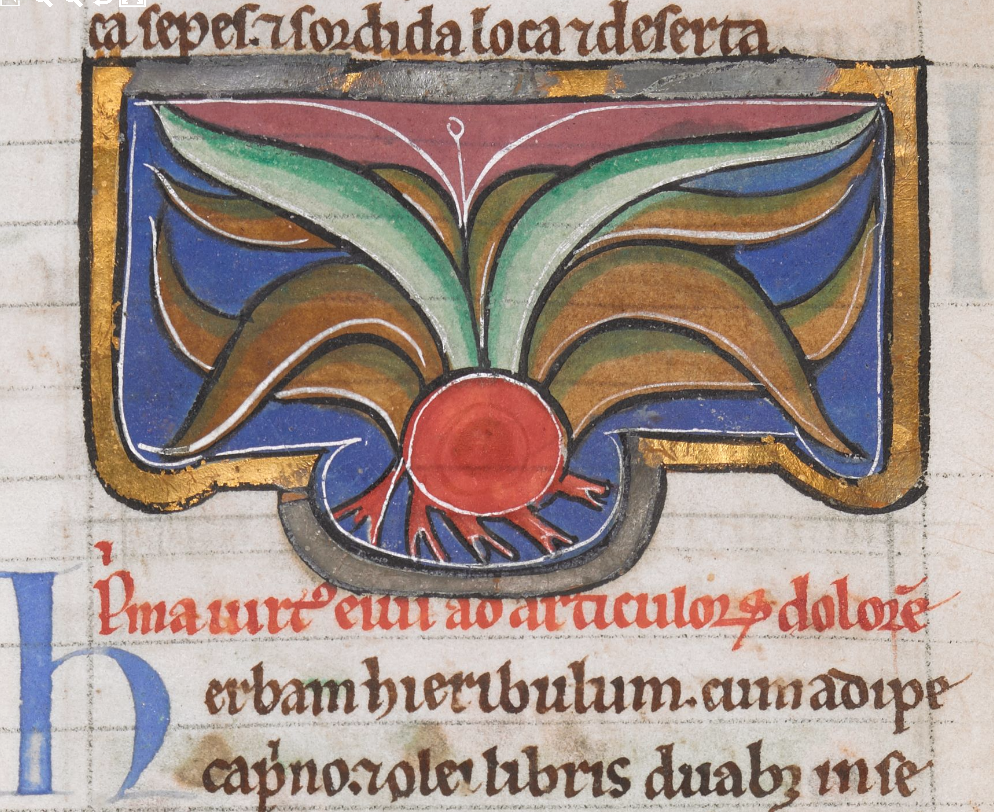 ca sepes. ⁊ sordida loca ⁊ deserta.
P̾ma uirtꝰ eiu ad articuloꝝ dolorē
herbam hieribulum. cum adipe
cap̾no. ⁊ olei libris duabꝫ in se